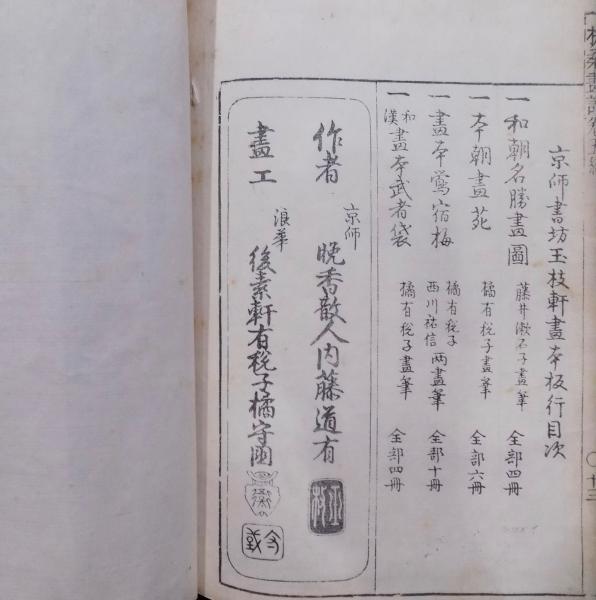 京師書坊玉枝軒畫本板行目次
一和朝名勝畫圖 藤井漱石子畫筆 全部四冊
一本朝畫苑 橘有稅子畫筆 全部六冊
一畫本鶯宿梅 橘有稅子 西川祐信 両畫筆 全部十冊
一和漢畫本武者袋 橘有稅子畫筆 全部四冊
作者 京師 晩香散人内藤道有
畫工 浪華 後素軒有稅子橘守國